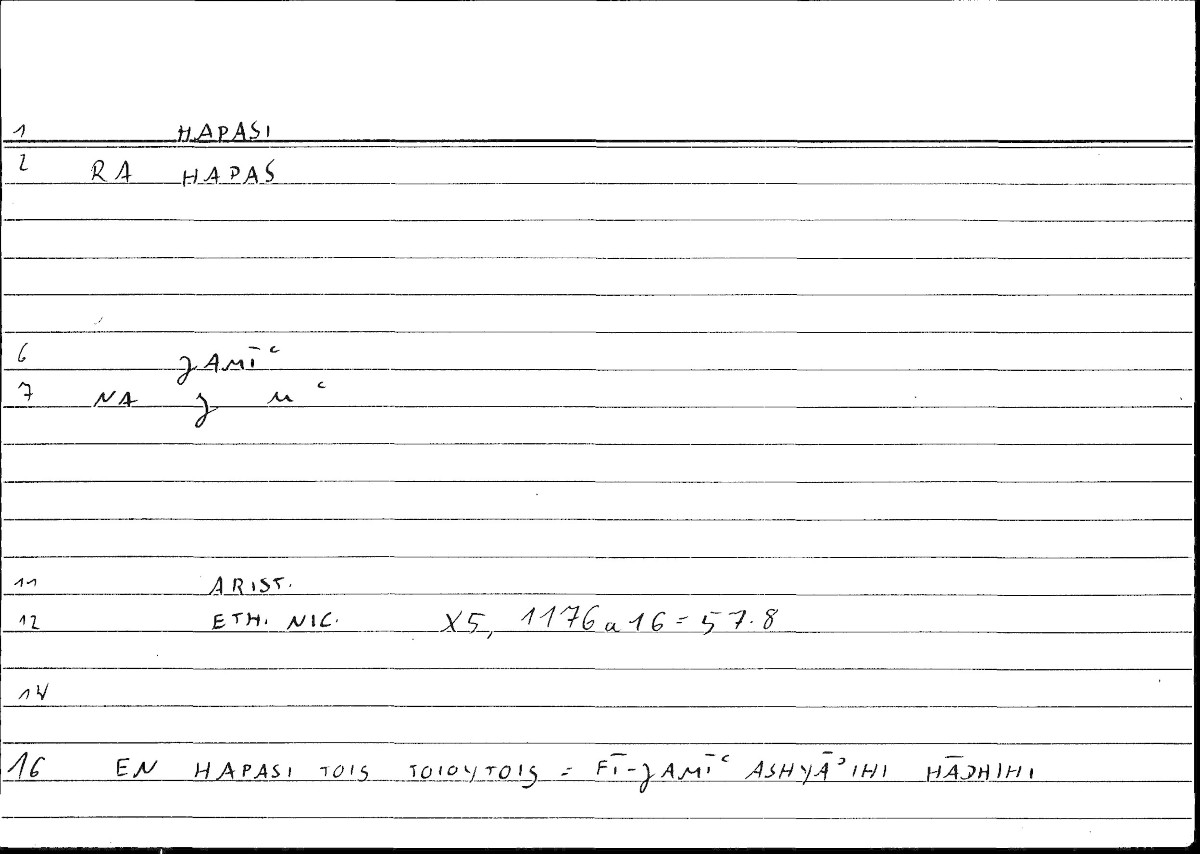 1 HAPASI
2 RA HAPAS
6 ʒAMĪʿ
7 NA ʒ M ʿ
11 ARIST.
12 ETH. NIC. X5, 1176a16 = 57.8
14
16 EN HAPASI TOIS TOIOYTOIS = FĪ-ʒAMĪʿ ASHYĀʾIHI HĀDHIHI